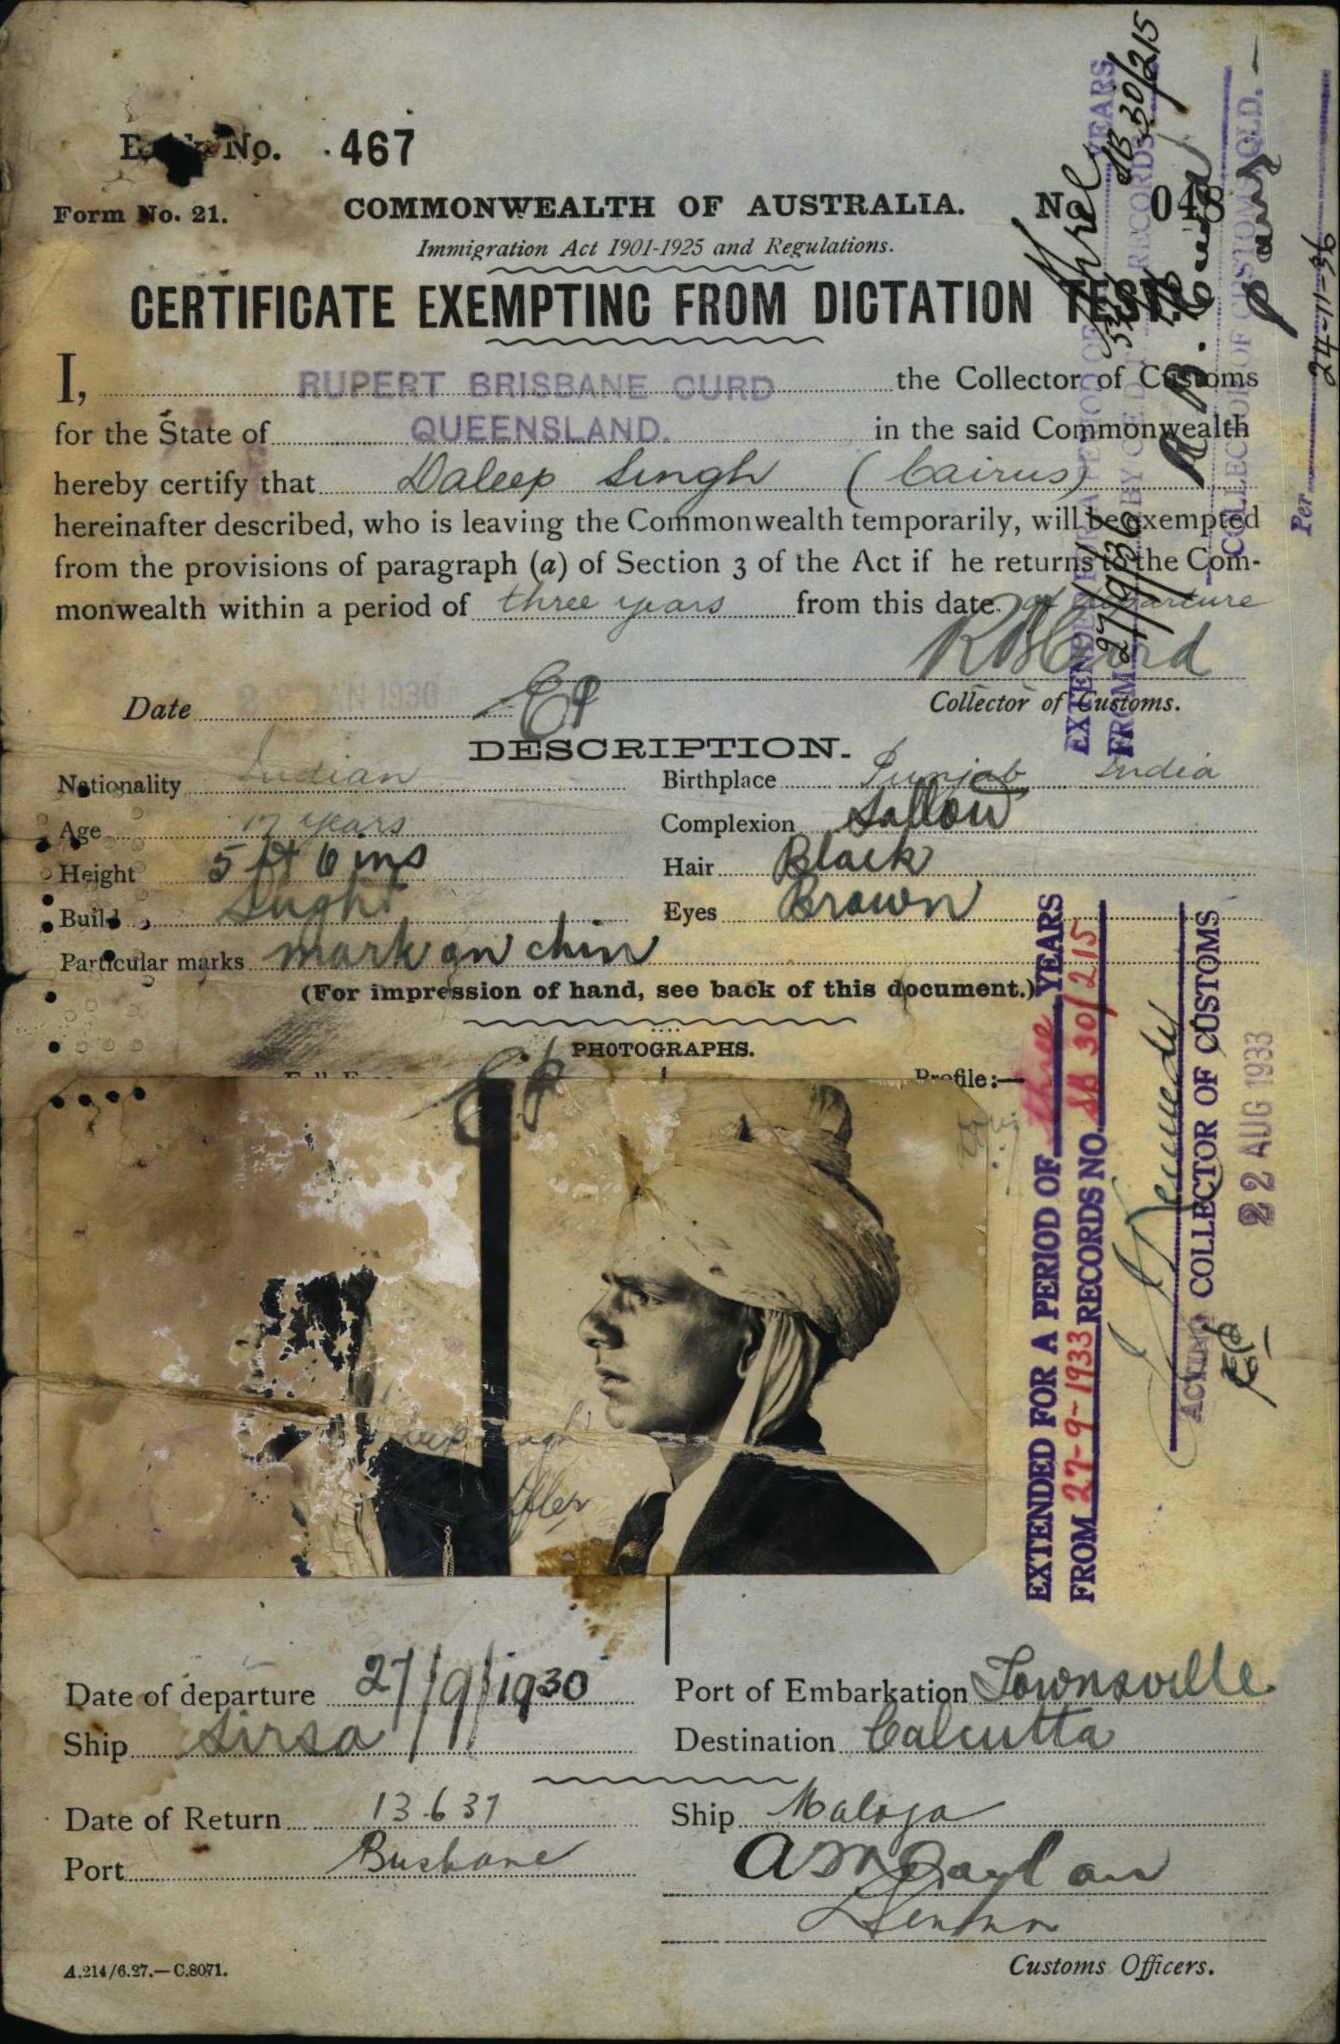 Book No. 467
Form No. 21.
COMMONWEALTH OF AUSTRALIA.
No 048
Immigration Act 1901-1925 and Regulations.
CERTIFICATE EXEMPTING FROM DICTATION TEST.
I, RUPERT BRISBANE CURD the Collector of Customs
for the State of QUEENSLAND. in the said Commonwealth
hereby certify that Daleep Singh (Cairns)
hereinafter described, who is leaving the Commonwealth temporarily, will be exempted
from the provisions of paragraph (a) of Section 3 of the Act if he returns to the Com-
monwealth within a period of three years from this date of departure
R B Curd
Date
Collector of Customs.
DESCRIPTION.
Nationality Indian
Birthplace Punjab India
Age 17 years
Complexion Sallow
Height 5 ft 6 ins
Hair Black
Build Slight
Eyes Brown
Particular marks mark on chin
(For impression of hand, see back of this document.)
PHOTOGRAPHS.
Full Face
Profile:—
Date of departure 27/9/1930
Port of Embarkation Townsville
Ship Sirsa
Destination Calcutta
Date of Return 13.6.37
Ship Maloja
Port Brisbane
Customs Officers.
A.214/6.27.—C.8071.
EXTENDED FOR A PERIOD OF three YEARS
FROM 27/9/36 BY C&E RECORDS SB 30/215
R B. Curd
COLLECTOR OF CUSTOMS, QLD.
Per
24-11-36
EXTENDED FOR A PERIOD OF three YEARS
FROM 27-9-1933 RECORDS NO SB 30/215
J Kennedy
ACTING COLLECTOR OF CUSTOMS
22 AUG 1933